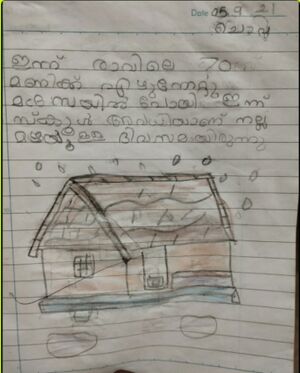 Date 05.9.21
ചൊവ്വ
ഇന്ന് രാവിലെ 7.0
മണിക്ക് എഴുന്നേറ്റു
മദ്രസയിൽ പോയി ഇന്ന്
സ്കൂൾ അവധിയാണ് നല്ല
മഴയുള്ള ദിവസമായിരുന്നു